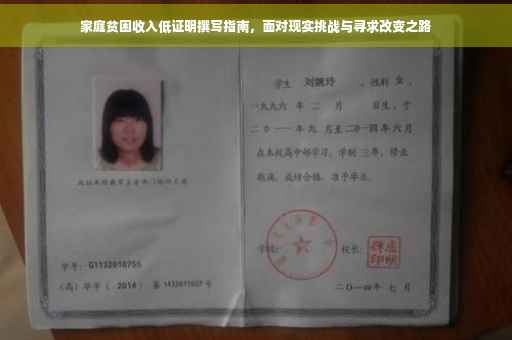 家庭贫困收入低证明撰写指南，面对现实挑战与寻求改变之路
学生 刘婉玲 ，性别 女 ，
一九九六 年 二 月 日生，于
二〇一一年九 月至二〇一四年 六 月
在本校高中部学习，学制 三年，修业
期满，成绩合格，准予毕业。
学校： 校长：
二〇一四年 七 月
学号：G1132010755
（高）毕字（ 2014 ）第 1432011027 号